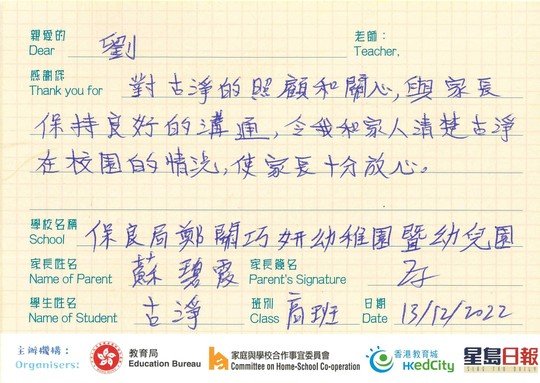 親愛的
Dear 劉 老師：
Teacher,
感謝你
Thank you for 對古淨的照顧和關心，與家長
保持良好的溝通，令我和家人清楚古淨
在校園的情況，使家長十分放心。
學校名稱
School 保良局鄭關巧妍幼稚園暨幼兒園
家長姓名
Name of Parent 蘇碧霞 家長簽名
Parent's Signature
學生姓名
Name of Student 古淨 班別
Class 高班 日期
Date 13/12/2022
主辦機構：
Organisers: 教育局
Education Bureau 家庭與學校合作事宜委員會
Committee on Home-School Co-operation 香港教育城
HKedCity 星島日報
SING TAO DAILY